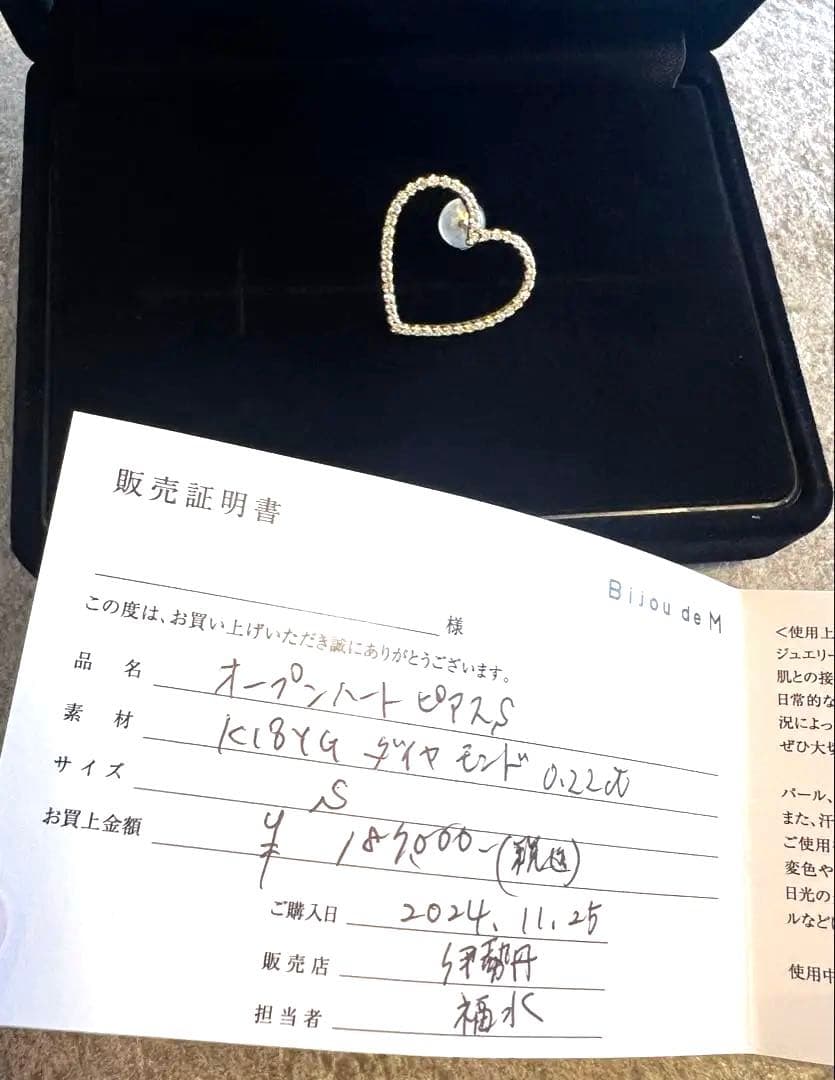 販売証明書
Bijou de M
様
この度は、お買い上げいただき誠にありがとうございます。
品名 オープンハートピアスS
素材 K18YG ダイヤモンド 0.22ct
サイズ S
お買上金額 ¥187,000-(税込)
ご購入日 2024.11.25
販売店 伊勢丹
担当者 福水
<使用上
ジュエリー
肌との接
日常的な
況によっ
ぜひ大切
パール、
また、汗
ご使用
変色や
日光の
ルなど
使用中